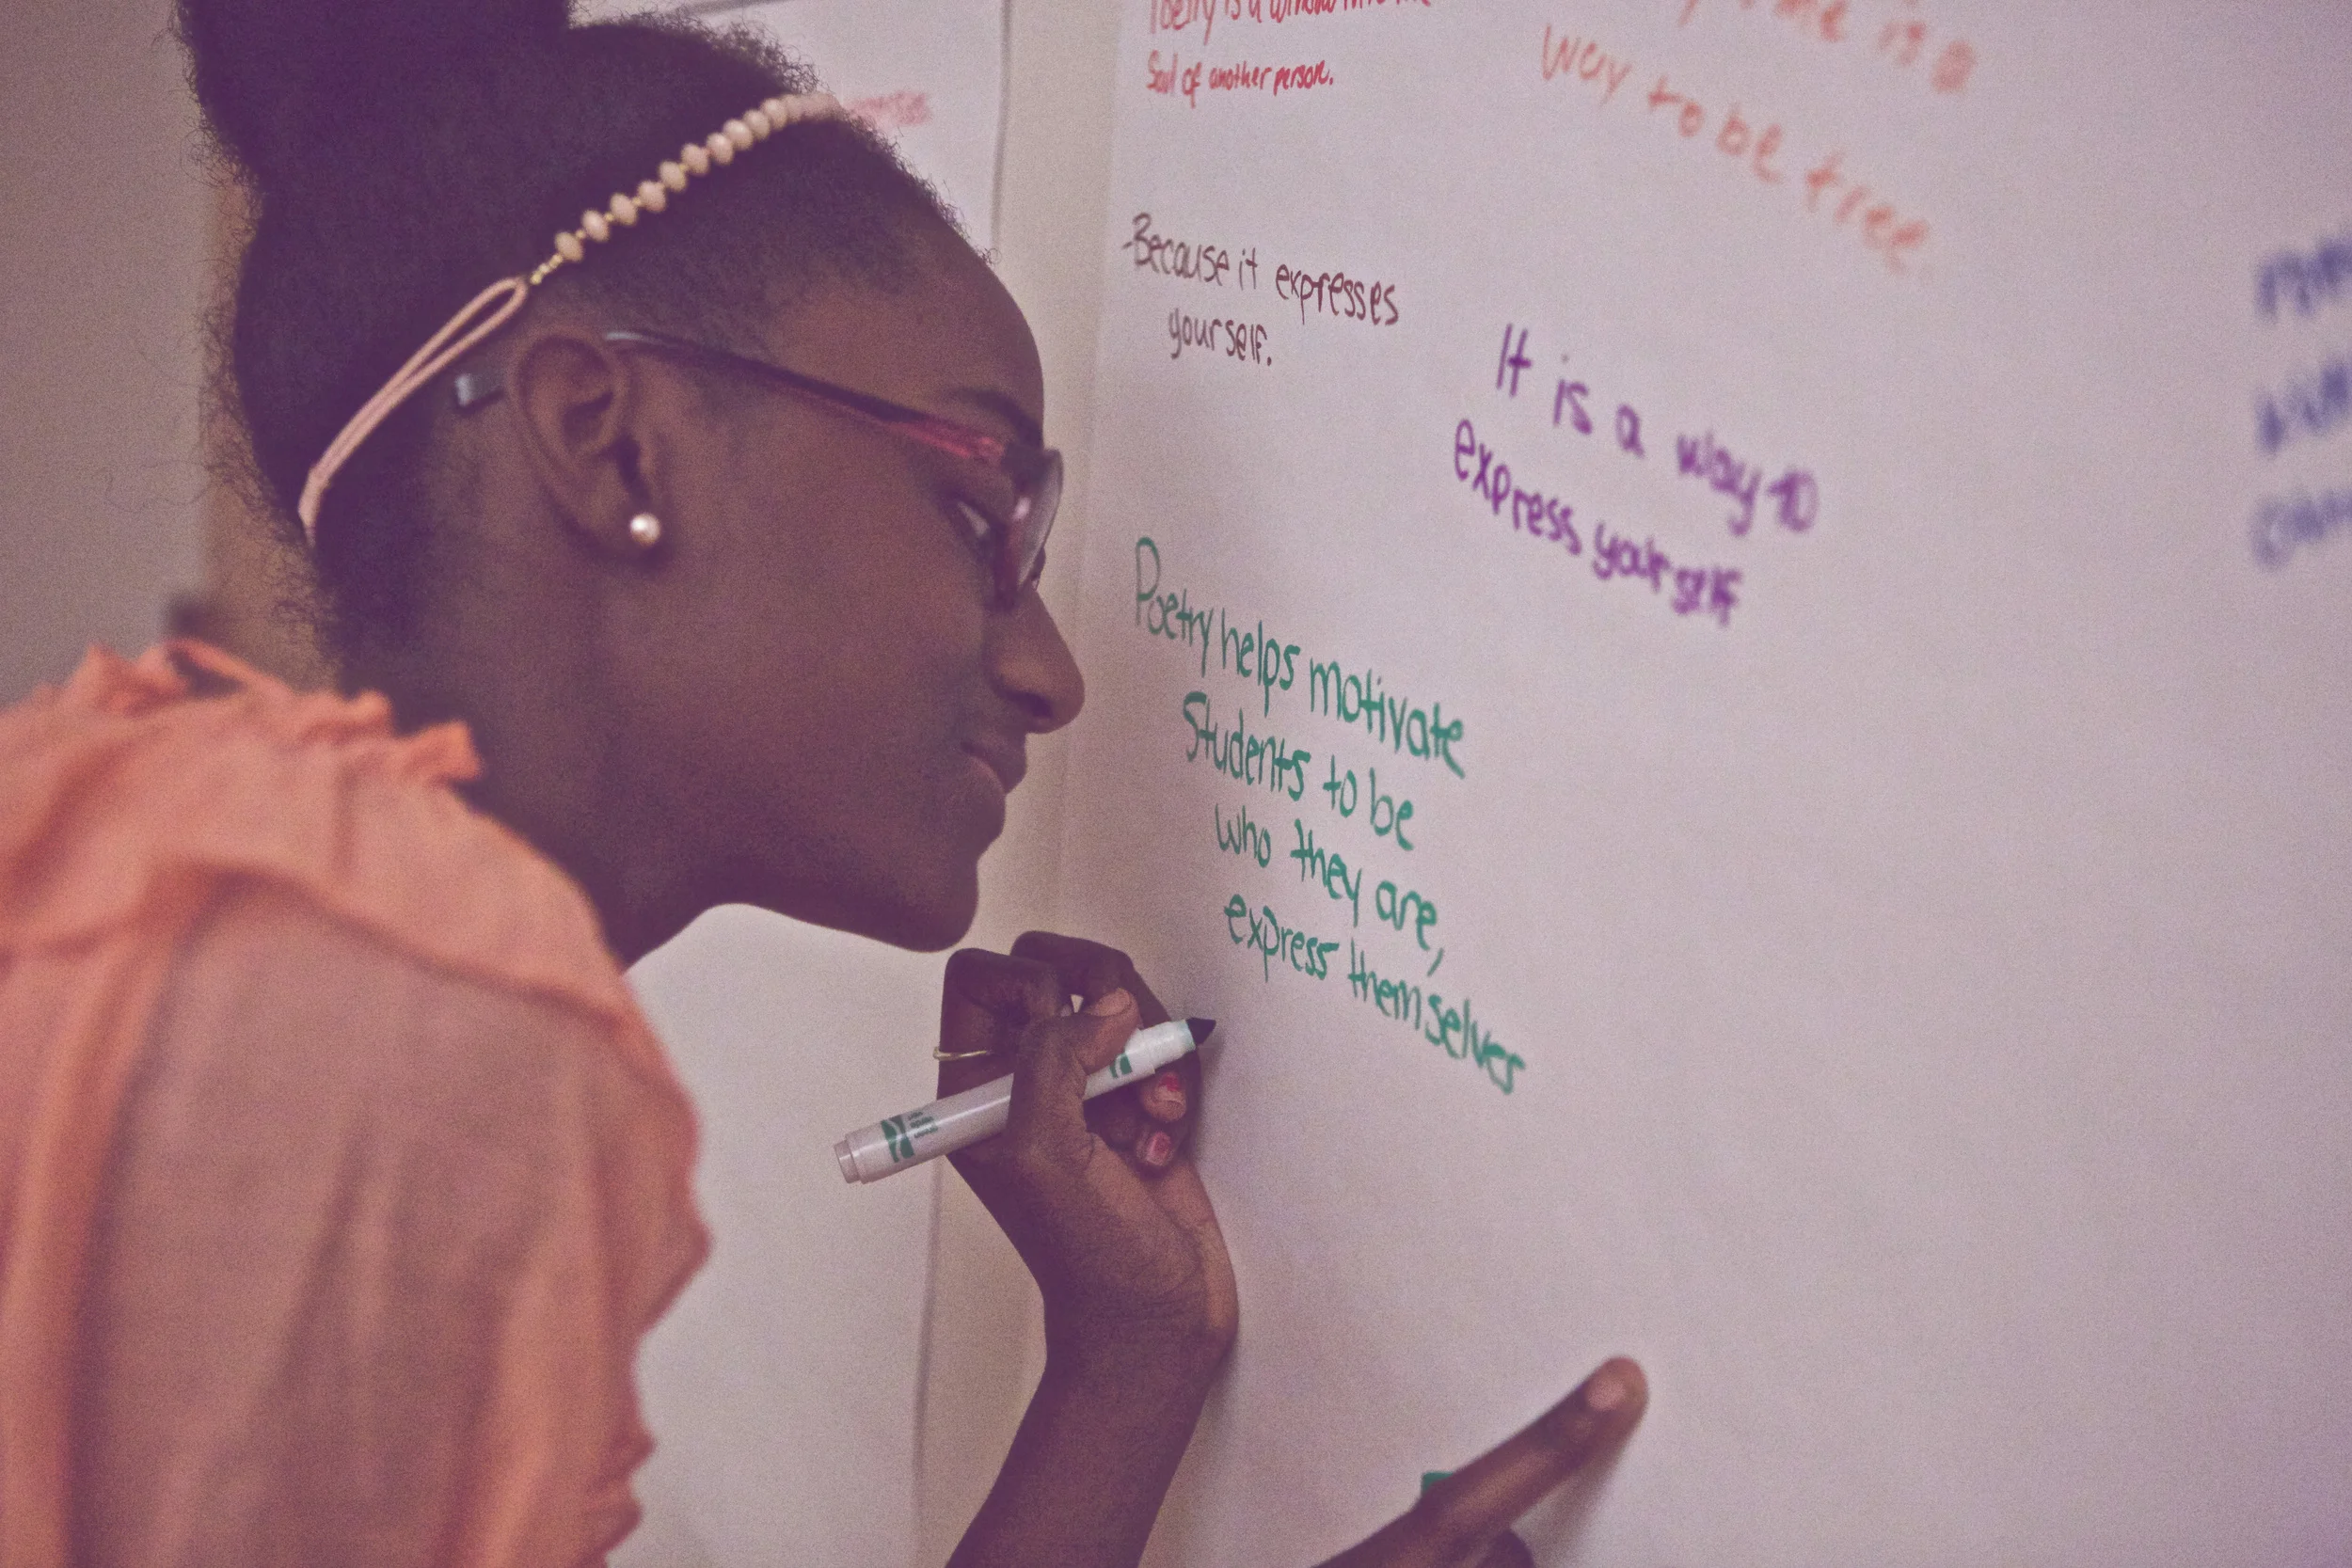 Poetry is a window into the
Soul of another person.
is a
way to be free
-Because it expresses
yourself.
It is a way to
express yourself
Poetry helps motivate
Students to be
who they are,
express themselves